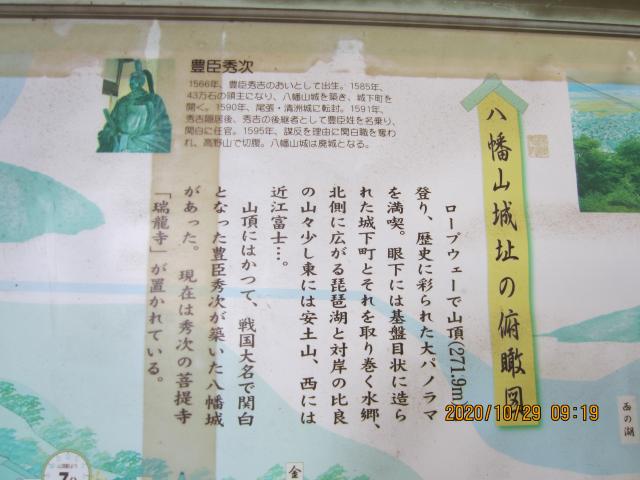 豊臣秀次
1566年、豊臣秀吉のおいとして出生。1585年、
43万石の領主になり、八幡山城を築き、城下町を
開く。1590年、尾張・清洲城に転封。1591年、
秀吉隠居後、秀吉の後継者として豊臣姓を名乗り、
関白に任官。1595年、謀反を理由に関白職を奪わ
れ、高野山で切腹。八幡山城は廃城となる。
八幡山城址の俯瞰図
ロープウェーで山頂(271.9m)
登り、歴史に彩られた大パノラマ
を満喫。眼下には基盤目状に造ら
れた城下町とそれを取り巻く水郷、
北側に広がる琵琶湖と対岸の比良
の山々少し東には安土山、西には
近江富士…。
山頂にはかつて、戦国大名で関白
となった豊臣秀次が築いた八幡城
があった。 現在は秀次の菩提寺
「瑞龍寺」が置かれている。
西の湖
金
7分
2020/10/29 09:19